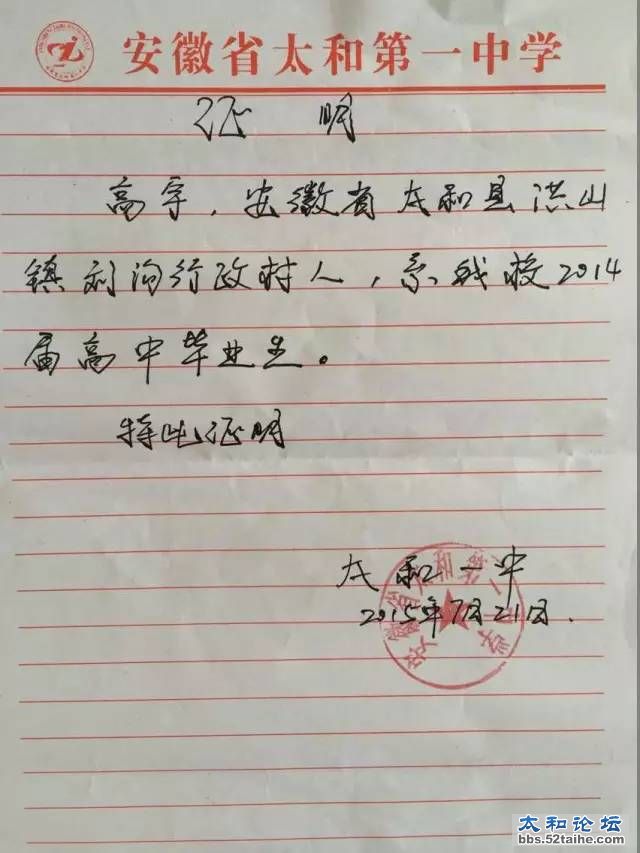 安徽省太和第一中学
证 明
高宇，安徽省太和县洪山
镇刘沟行政村人，系我校2014
届高中毕业生。
特此证明
太和一中
2015年7月21日.
安徽省太和第一中学
太和论坛
bbs.52taihe.com